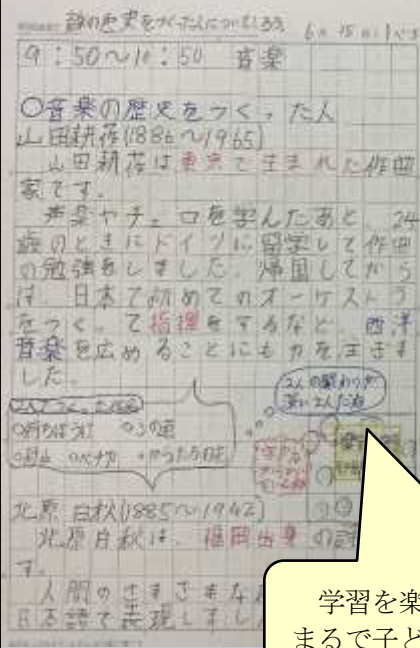 9:50〜10:50 音楽
○音楽の歴史をつくった人
山田耕筰(1886〜1965)
山田耕筰は東京で生まれた作曲
家です。
声楽やチェロを学んだあと、24
歳のときにドイツに留学して作曲
の勉強をしました。帰国してから
は、日本で初めてのオーケストラ
をつくって指揮をするなど、西洋
音楽を広めることにも力を注ぎま
した。
2人の関わりが
深い2人だね
○待ちぼうけ ○この道
○ペチカ ○からたちの花
北原 白秋(1885〜1942)
北原白秋は、福岡出身の
す。
人間のさまざまな
日本語で表現しまし
学習を楽
まるで子ど